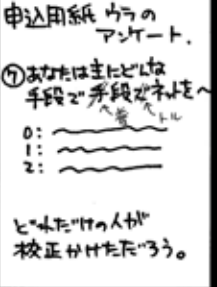 申込用紙 ウラの
アンケート.
⑦あなたは主にどんな
手段で手段でネットをへ
着 トル
0:
1:
2:
どれだけの人が
校正かけただろう。